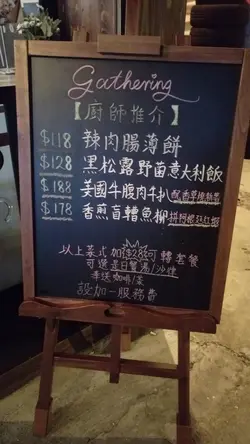 Gathering
【廚師推介】
$118 辣肉腸薄餅
$128 黑松露野菌意大利飯
$188 美國牛腹肉牛扒
$178 香煎盲鰽魚柳
以上菜式加$28可轉套餐
可選是日餐湯/沙律
奉送咖啡/茶
設加一服務費